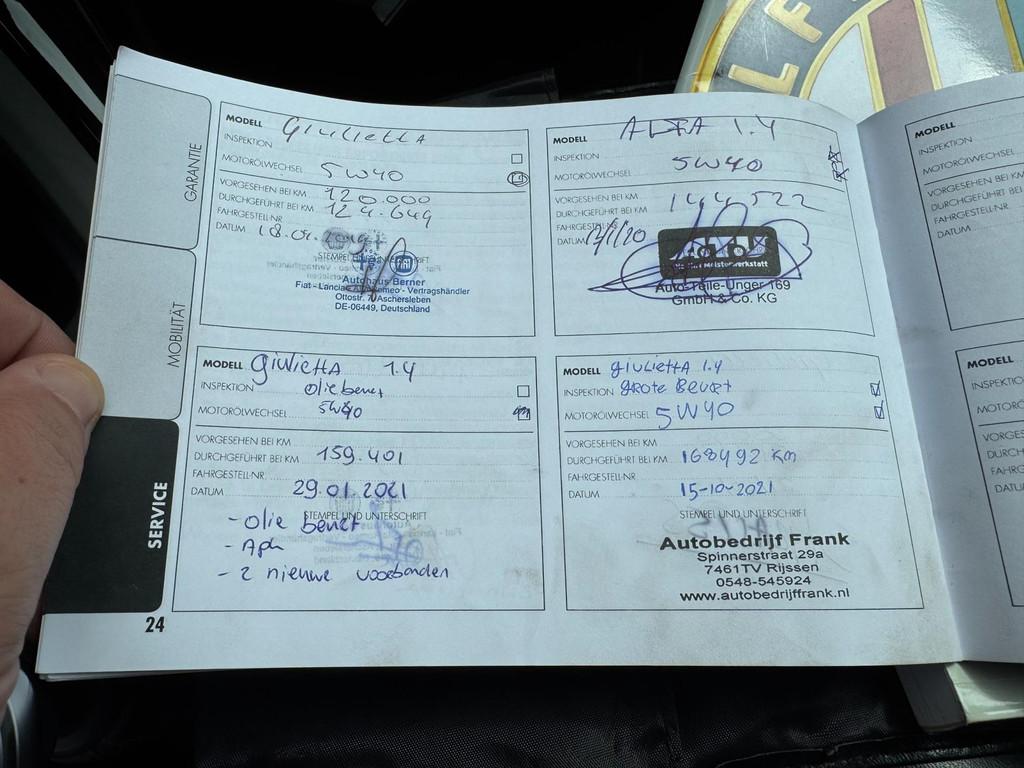 LF
GARANTIE
MOBILITÄT
SERVICE
MODELL Giulietta
INSPEKTION
MOTORÖLWECHSEL 5W40
VORGESEHEN BEI KM 120.000
DURCHGEFÜHRT BEI KM 124.649
FAHRGESTELL-NR.
DATUM 18.01.
STEMPEL UND UNTERSCHRIFT
Autohaus Berner
Fiat - Lancia - Alfa Romeo - Vertragshändler
Ottostr. 7, Aschersleben
DE-06449, Deutschland
MODELL ALFA 1.4
INSPEKTION
MOTORÖLWECHSEL 5W40
VORGESEHEN BEI KM
DURCHGEFÜHRT BEI KM 144522
FAHRGESTELL-NR.
DATUM
Meisterwerkstatt
Auto-Teile-Unger 169
GmbH & Co. KG
MODELL Giulietta 1.4
INSPEKTION olie beurt
MOTORÖLWECHSEL 5W40
VORGESEHEN BEI KM
DURCHGEFÜHRT BEI KM 159.401
FAHRGESTELL-NR.
DATUM 29.01.2021
STEMPEL UND UNTERSCHRIFT
- olie beurt
- APK
- 2 nieuwe voorbanden
MODELL giulietta 1.4
INSPEKTION grote Beurt
MOTORÖLWECHSEL 5W40
VORGESEHEN BEI KM
DURCHGEFÜHRT BEI KM 168492 km
FAHRGESTELL-NR.
DATUM 15-10-2021
STEMPEL UND UNTERSCHRIFT
Autobedrijf Frank
Spinnerstraat 29a
7461TV Rijssen
0548-545924
www.autobedrijffrank.nl
24
MODELL
INSPEKTION
MOTORÖLWECHSEL
VORGESEHEN BEI
DURCHGEFÜHRT BE
FAHRGESTELL-NR.
DATUM
MODELL
INSPEKTIO
MOTORÖ
VORGESE
DURCH
FAHRG
DATU